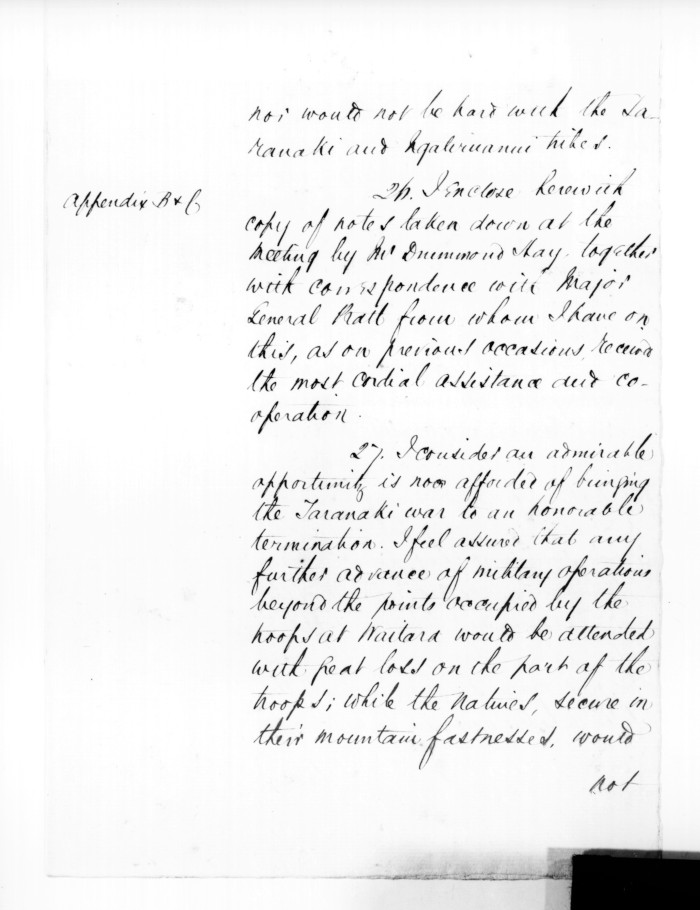 nor would not be hard with the Ta-
ranaki and Ngatiruanui tribes.
Appendix B & C
26. I Enclose herewith
copy of notes taken down at the
Meeting by Mr Drummond Hay together
with correspondence with Major
General Pratt from whom I have on
this, as on previous occasions, received
the most cordial assistance and co-
operation.
27. I consider an admirable
opportunity is now afforded of bringing
the Taranaki war to an honorable
termination. I feel assured that any
further advance of military operations
beyond the points occupied by the
troops at Waitara would be attended
with great loss on the part of the
troops; while the Natives, secure in
their mountain fastnesses, would
not